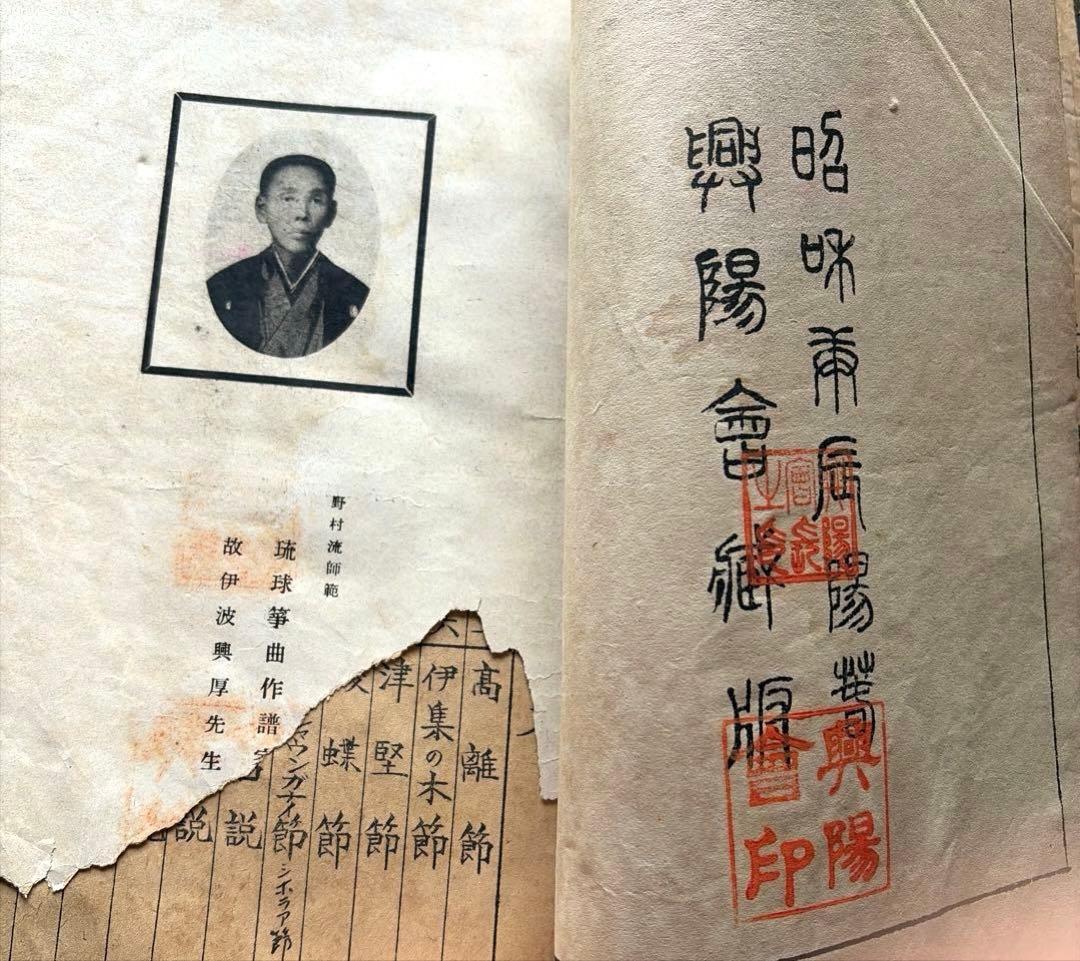 昭和庚辰陽春
興陽會藏版
興陽
會印
野村流師範
琉球箏曲作譜
故伊波興厚先生
高離節
伊集の木節
津堅節
蝶節
ウンガナイ節 シホラア節
説
説